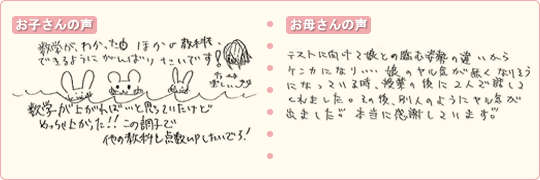 お子さんの声
数学が、わかった曲 ほかの教科も、
できるようにがんばりたいです!
数学が上がれば…と思っていたけど
めっちゃ上がった!!この調子で
他の教科も点数upしたいでろ!
お母さんの声
テストに向けて娘との臨む姿勢の違いから
ケンカになり…娘のヤル気が無くなりそう
になっている時、授業の後に2人で話して
くれました。その後、別人のようにヤル気が
出ました。本当に感謝しています。